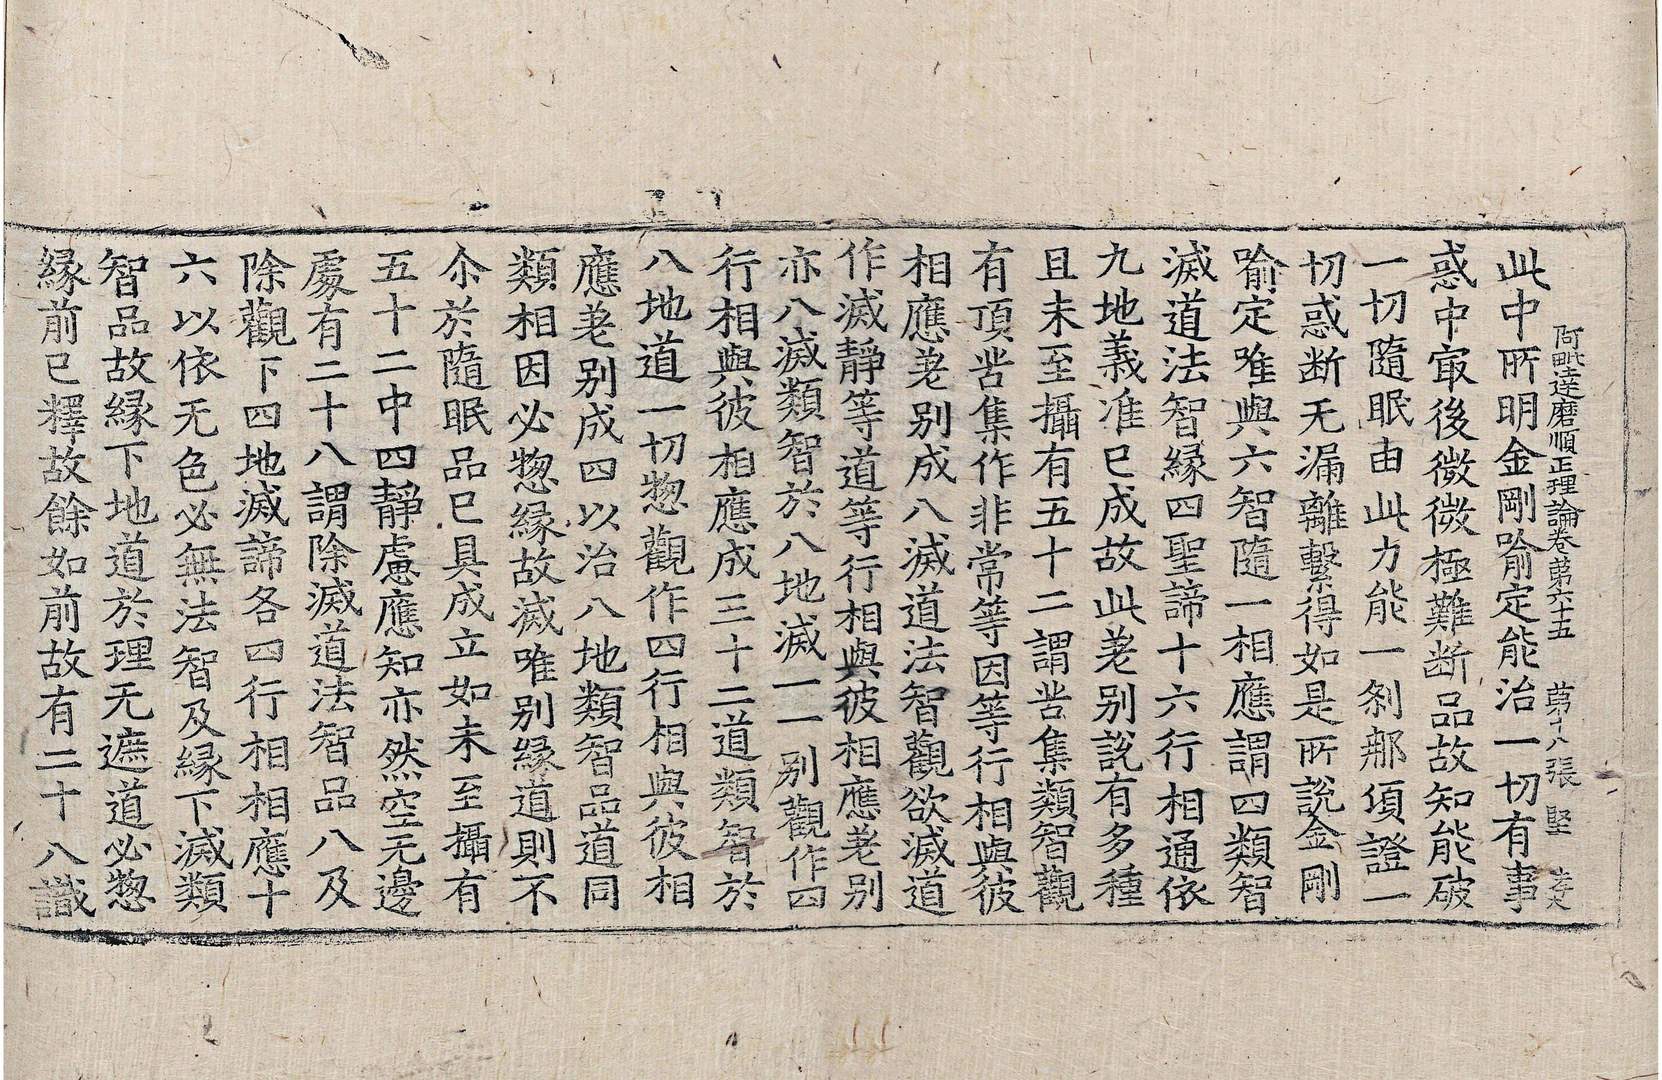 阿毗達磨順正理論卷苐六十五　苐十八張　堅
此中所明金剛喻定能治一切有事
惑中㝡後微微極難断品故知能破
一切隨眠由此力能一刹那頃證一
切惑断无漏離繫得如是所說金剛
喻定唯與六智隨一相應謂四類智
滅道法智緣四聖諦十六行相通依
九地義准已成故此差別說有多種
且未至攝有五十二謂苦集類智觀
有頂苦集作非常等因等行相與彼
相應差別成八滅道法智觀欲滅道
作滅靜等道等行相與彼相應差別
亦八滅類智於八地滅一一別觀作四
行相與彼相應成三十二道類智於
八地道一切惣觀作四行相與彼相
應差別成四以治八地類智品道同
類相因必惣緣故滅唯別緣道則不
尒於隨眠品已具成立如未至攝有
五十二中四靜慮應知亦然空无邊
處有二十八謂除滅道法智品八及
除觀下四地滅諦各四行相相應十
六以依无色必無法智及緣下滅類
智品故緣下地道於理无遮道必惣
緣前已釋故餘如前故有二十八識